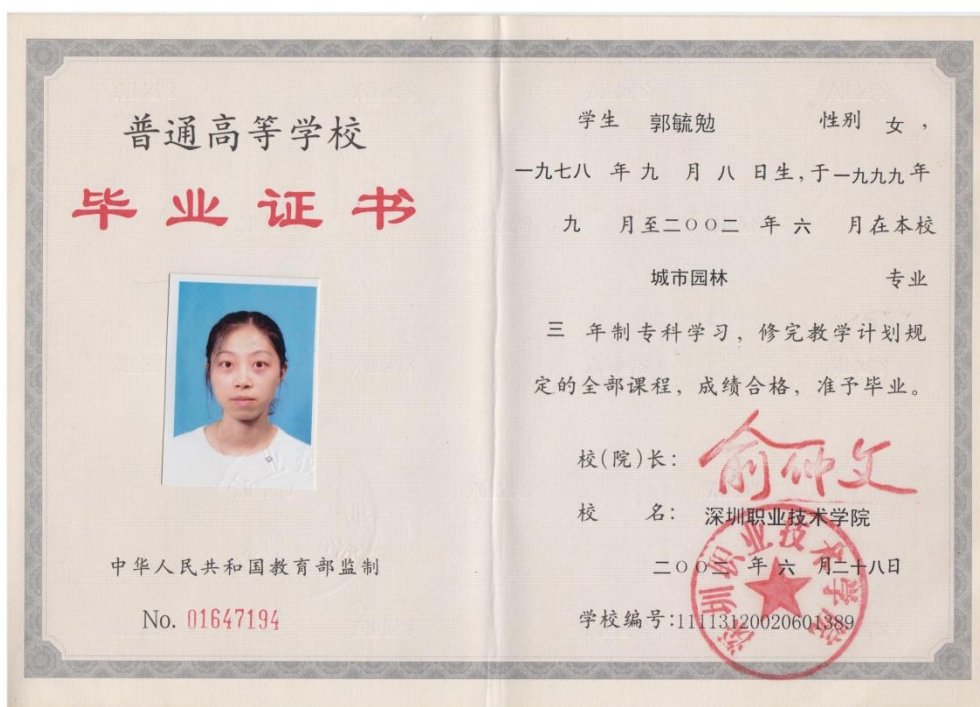 普通高等学校
毕业证书
中华人民共和国教育部监制
No. 01647194
学生 郭毓勉 性别 女，
一九七八 年 九 月 八 日生，于一九九九年
九 月至二〇〇二 年 六 月在本校
城市园林 专业
三 年制专科学习，修完教学计划规
定的全部课程，成绩合格，准予毕业。
校(院)长： 俞仲文
校 名： 深圳职业技术学院
二〇〇二 年 六 月二十八日
学校编号:11113120020601389
深圳职业技术学院